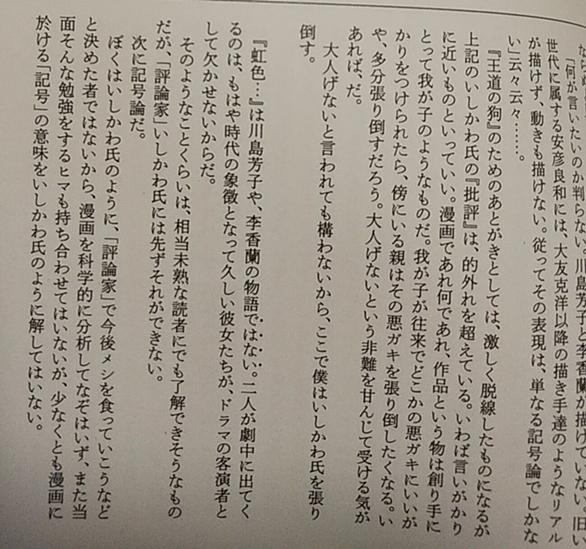 「何が言いたいのか判らな
川島芳子と李香蘭が描けていない。旧い
世代に属する安彦良和には、大友克洋以降の描き手達のようなリアル
が描けず、動きも描けない。従ってその表現は、単なる記号論でしかな
い」云々云々……。
『王道の狗』のためのあとがきとしては、激しく脱線したものになるが
上記のいしかわ氏の『批評』は、的外れを超えている。いわば言いがかり
に近いものといっていい。漫画であれ何であれ、作品という物は創り手に
とって我が子のようなものだ。我が子が往来でどこかの悪ガキにいいが
かりをつけられたら、傍にいる親はその悪ガキを張り倒したくなる。い
や、多分張り倒すだろう。大人げないという非難を甘んじて受ける気が
あれば、だ。
大人げないと言われても構わないから、ここで僕はいしかわ氏を張り
倒す。
『虹色…』は川島芳子や、李香蘭の物語ではない。二人が劇中に出てく
るのは、もはや時代の象徴となって久しい彼女たちが、ドラマの客演者と
して欠かせないからだ。
そのようなことくらいは、相当未熟な読者にでも了解できそうなもの
だが、「評論家」いしかわ氏には先ずそれができない。
次に記号論だ。
ぼくはいしかわ氏のように、「評論家」で今後メシを食っていこうなど
と決めた者ではないから、漫画を科学的に分析してなぞはいず、また当
面そんな勉強をするヒマも持ち合わせてはいないが、少なくとも漫画に
於ける「記号」の意味をいしかわ氏のように解してはいない。